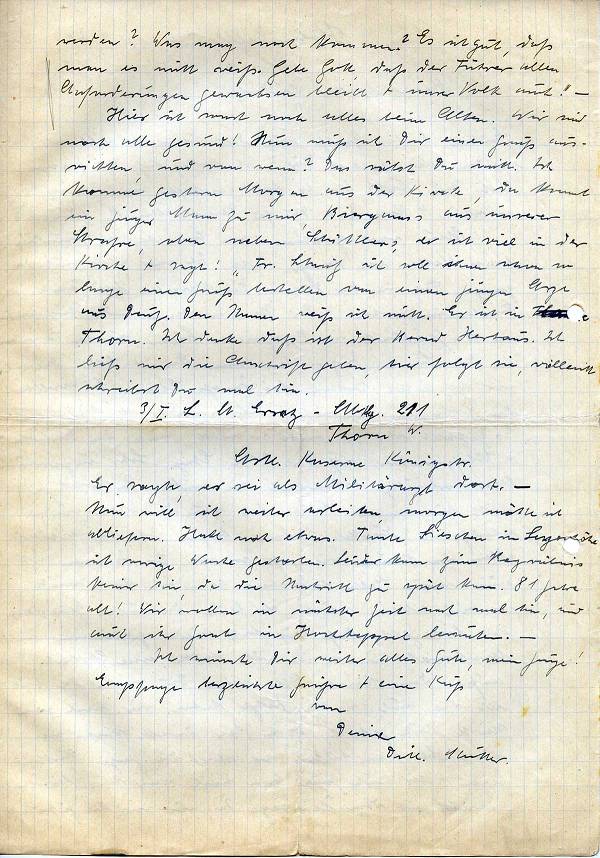 werden? Was mag noch kommen? Es ist gut, daß
man es nicht weiß. Gebe Gott, daß der Führer allen
Anforderungen gewachsen bleibt + unser Volk auch! "—
Hier ist sonst noch alles beim Alten. Wir sind
noch alle gesund! Nun muß ich Dir einen Gruß aus-
richten, und von wem? Das rätst Du nicht. Ich
komme gestern Morgen aus der Kirche, da kommt
ein junger Mann zu mir, aus unserer
Straße, oben neben er ist viel in der
Kirche + sagt: „Fr. ich soll ihnen
einen Gruß bestellen von einem jungen Arzt
aus Den Namen weiß ich nicht. Er ist in
Thorn. Ich denke daß ist der Ich
ließ mir die Anschrift geben, hier folgt sie, vielleicht
schreibst Du mal hin.
3/I. 211
Thorn W.
Kaserne Königstr.
Er sagte, er sei als Militärarzt dort. —
Nun will ich weiter arbeiten, morgen möchte ich
abliefern. Habe noch etwas. Tante Lieschen in
ist vorige Woche gestorben. Leider kam zum Begräbnis
keiner hin, da die Nachricht zu spät kam. 81 Jahre
alt! Wir wollen in nächster Zeit noch mal hin, und
auch ihr Grab in besuchen. —
Ich wünsche Dir weiter alles Gute, mein Junge!
Empfange herzlichste Grüße + eine Kuß
von
Deiner
Mutter.